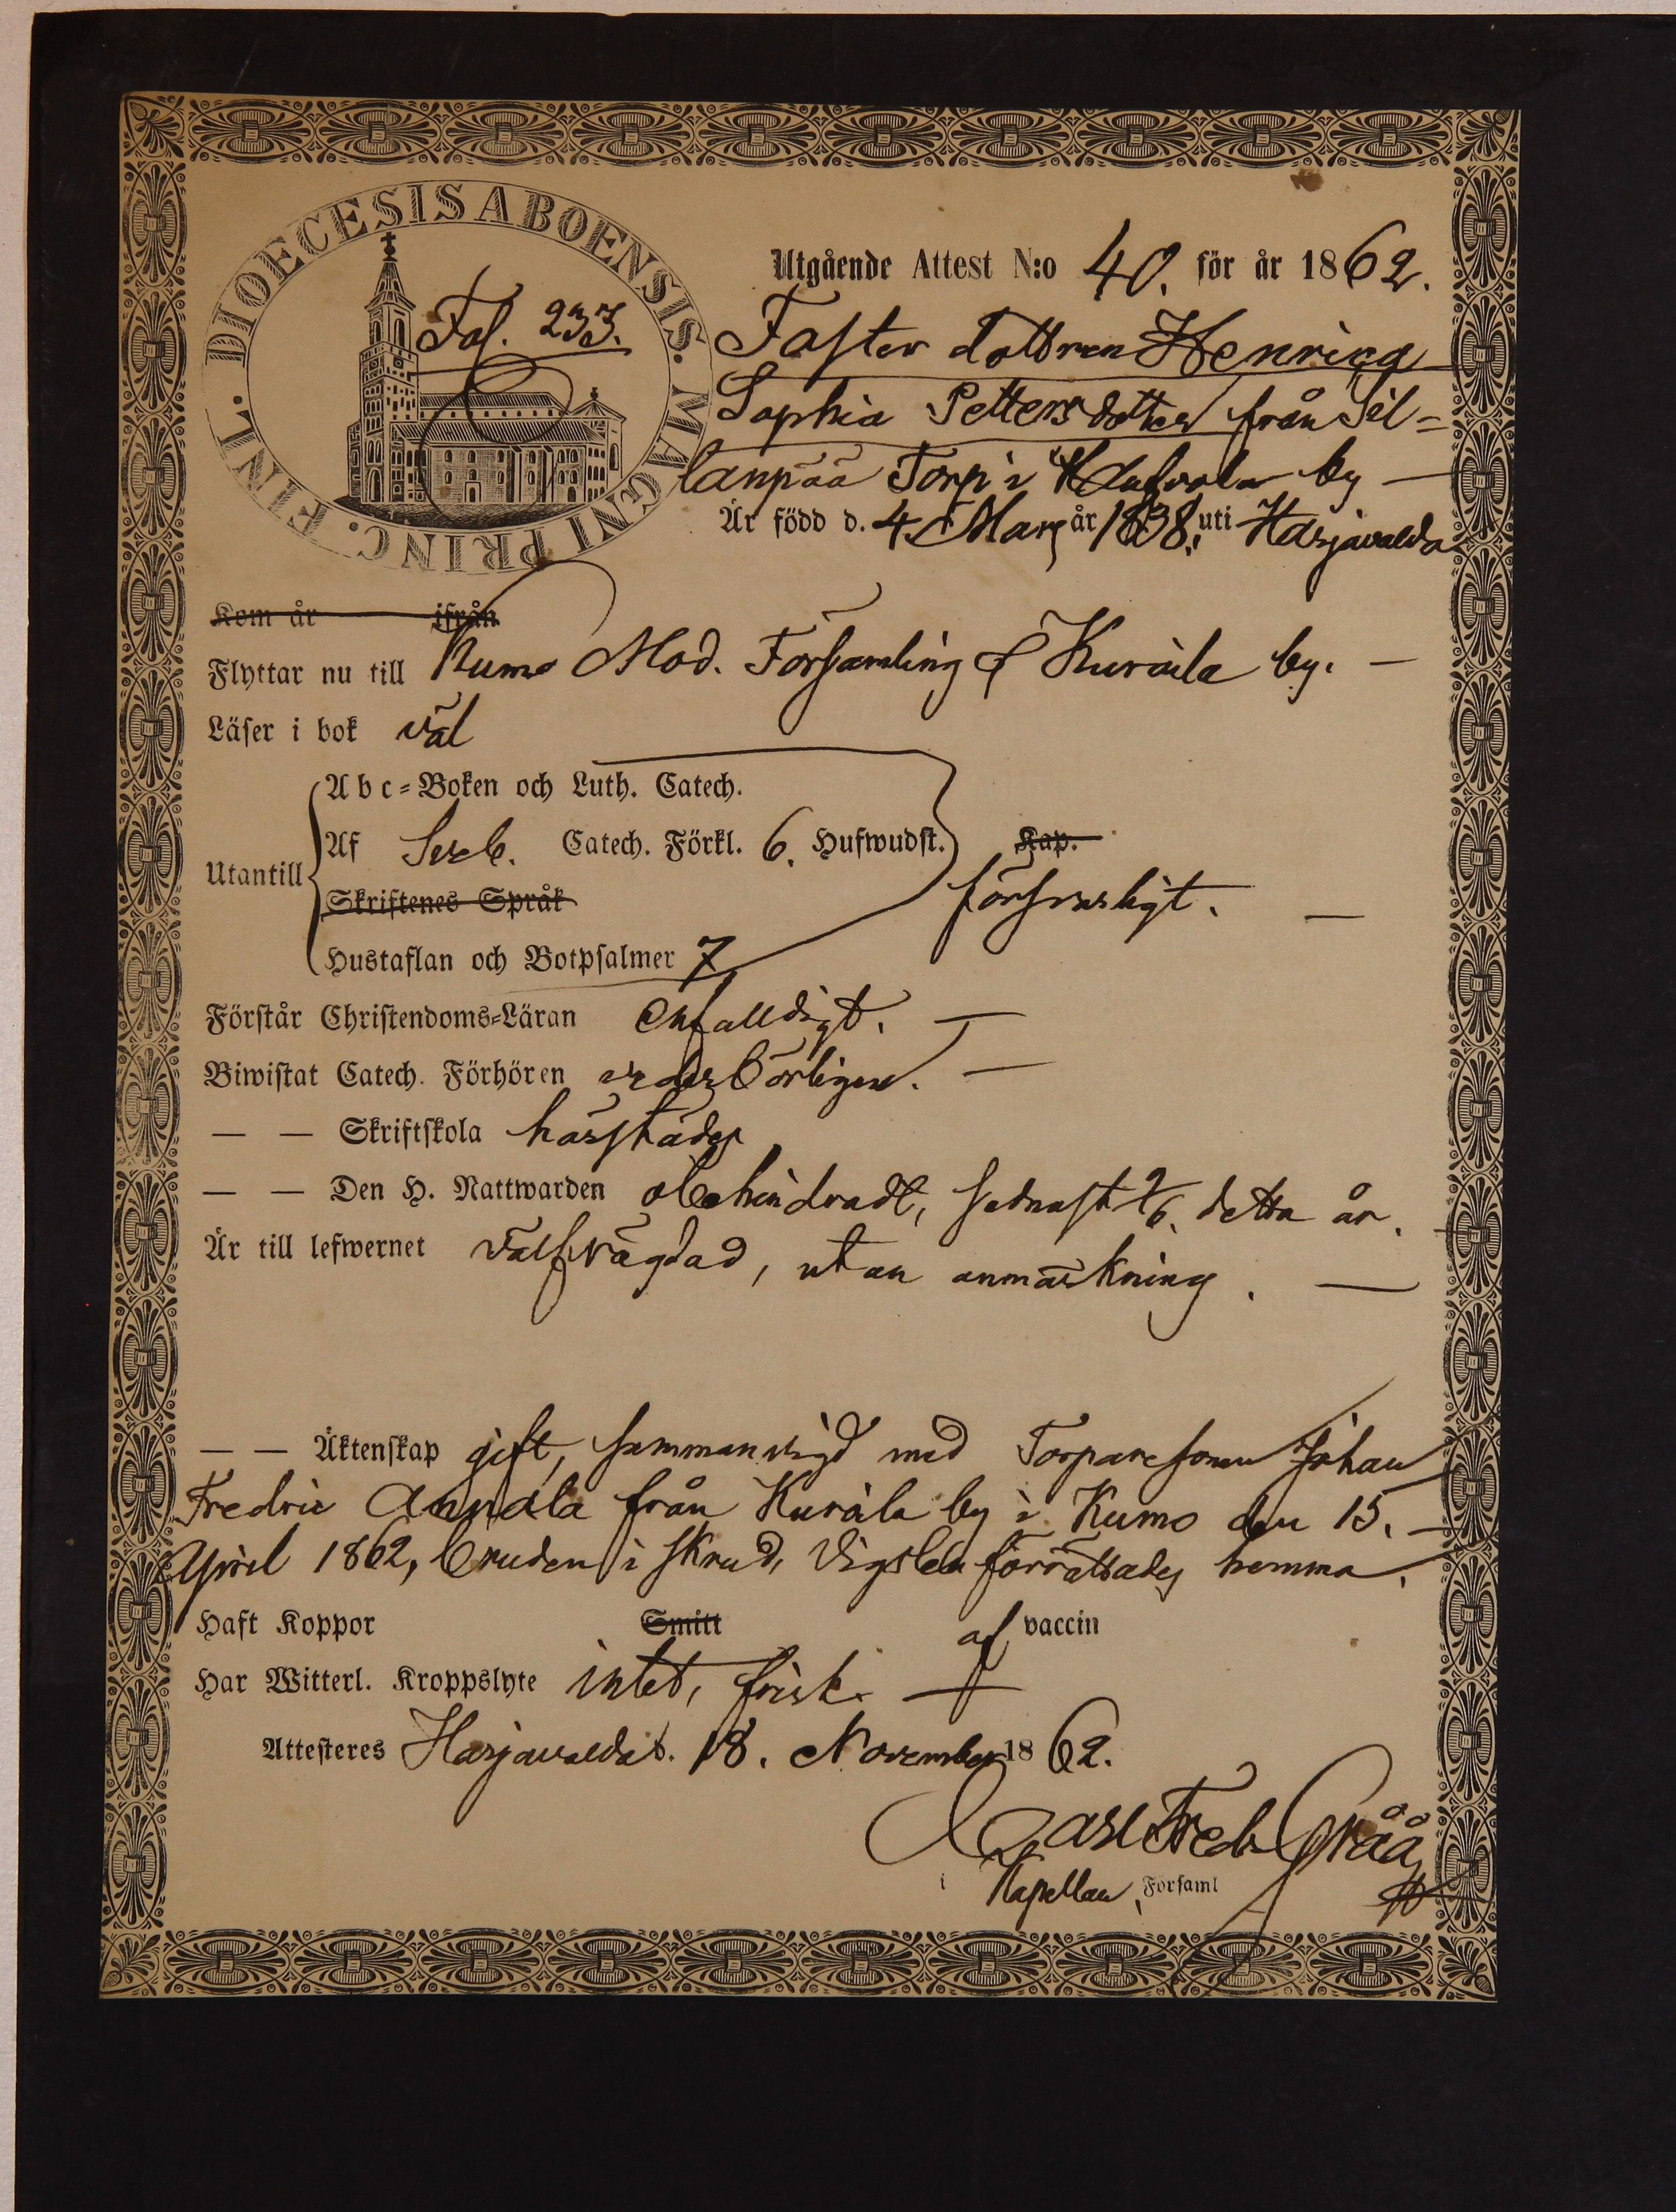 DIOECESIS ABOENSIS. MAGNI PRINC. FINL.
Fol. 233.
Utgående Attest N:o 40. för år 1862.
Foster dottren Henrica
Sophia Petters dotter från Sil=
lanpää Torp i by —
Är född d. 4 Mars år 1838, uti Harjavalda
Kom år ifrån
Flyttar nu till Kumo Mod. Församling & Kuråila by. —
Läser i bok väl
Abc=Boken och Luth. Catech.
Utantill Af Sveb. Catech. Förkl. 6. Hufwudst. Kap.
Skriftenes Språk försvarligt. —
Hustaflan och Botpsalmer 7
Förstår Christendoms=Läran enfalldigt. —
Biwistat Catech. Förhören vederbörligen. —
— — Skriftskola härstädes
— — Den H. Nattwarden obehindradt, sednast detta år.
Är till lefwernet välfrägdad, utan anmärkning. —
— — Äktenskap gift, sammanvigd med Torparesonen Johan
Fredric Annala från Kuråila by i Kumo den 15. —
April 1862, bruden i skrud, vigseln förrättades hemma.
Haft Koppor Smitt af vaccin
Har Witterl. Kroppslyte intet, frisk. —
Attesteres Harjavalda d. 18. November 1862.
Carl Fredr Gråå
i Kapellan, Församl